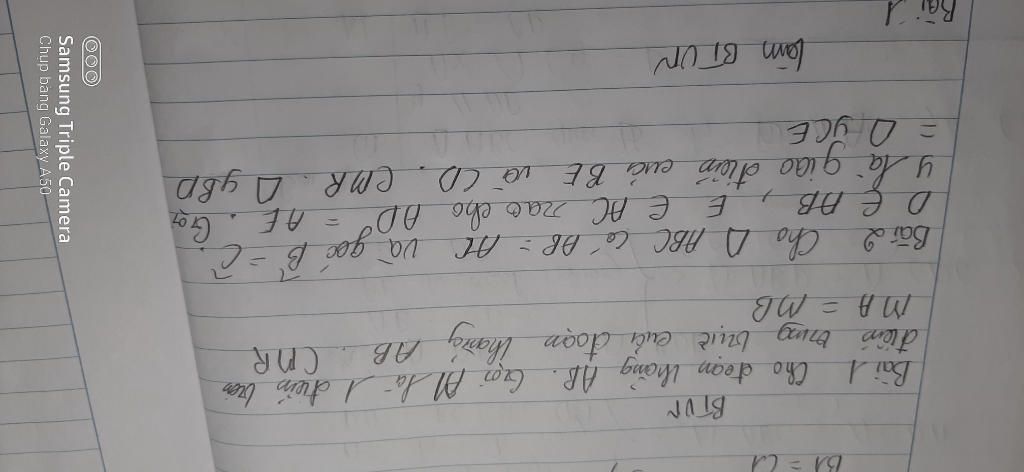 B1 = C1
BTVN
Bài 1 Cho đoạn thẳng AB. Gọi M là 1 điểm
điểm trung trực của đoạn thẳng AB. CMR
MA = MB
Bài 2 Cho Δ ABC có AB = AC và góc B = C.
D ∈ AB, E ∈ AC sao cho AD = AE. Gọi
y là giao điểm của BE và CD. CMR. Δ yBD
= Δ yCE
Làm BTVN
Bài 1
Samsung Triple Camera
Chụp bằng Galaxy A50